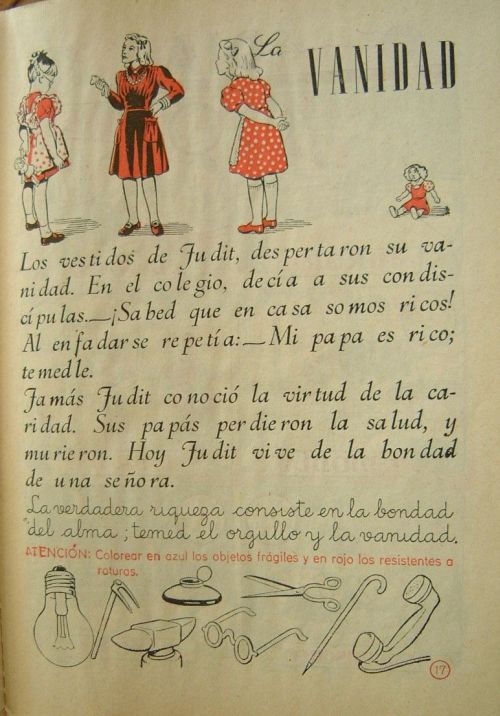 La VANIDAD
Los vestidos de Judit, despertaron su va-
nidad. En el colegio, decía a sus condis-
cípulas.—¡Sabed que en casa somos ricos!
Al enfadarse repetía:—Mi papa es rico;
temedle.
Jamás Judit conoció la virtud de la ca-
ridad. Sus papás perdieron la salud, y
murieron. Hoy Judit vive de la bondad
de una señora.
La verdadera riqueza consiste en la bondad
del alma; temed el orgullo y la vanidad.
ATENCIÓN: Colorear en azul los objetos frágiles y en rojo los resistentes a
roturas.
17